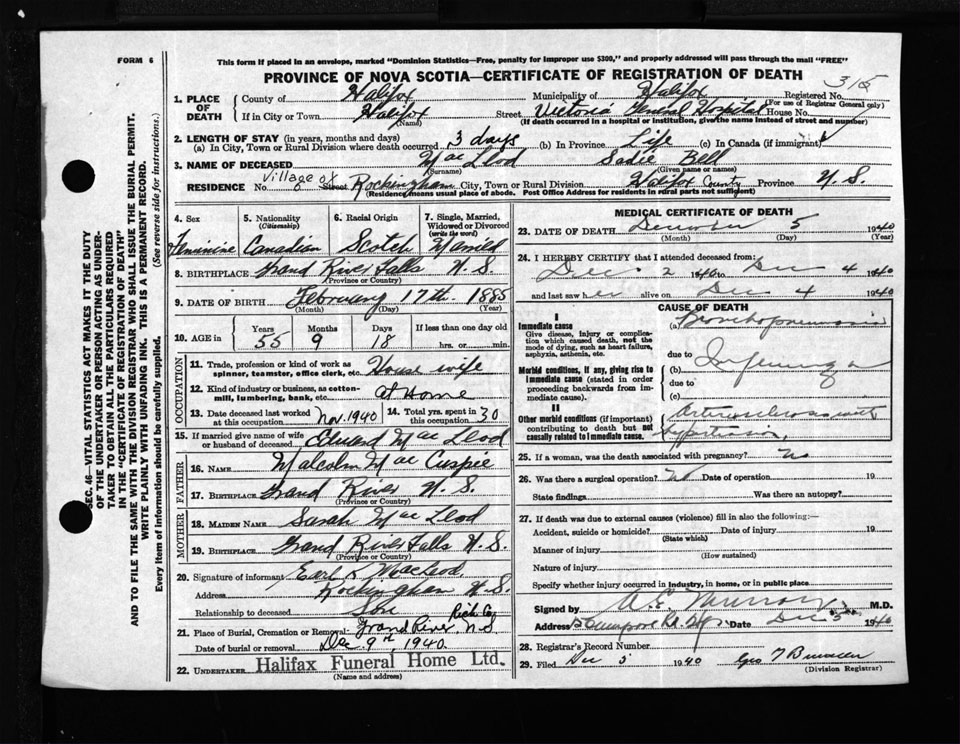 FORM 6
This form if placed in an envelope, marked "Dominion Statistics—Free, penalty for improper use $300," and properly addressed will pass through the mail "FREE"
PROVINCE OF NOVA SCOTIA—CERTIFICATE OF REGISTRATION OF DEATH
315
1. PLACE OF DEATH County of Halifax Municipality of Halifax Registered No. (For use of Registrar General only)
If in City or Town Halifax (Name) Street Victoria General Hospital House No.
(If death occurred in a hospital or institution, give the name instead of street and number)
2. LENGTH OF STAY (in years, months and days)
(a) In City, Town or Rural Division where death occurred 3 days (b) In Province Life (c) In Canada (if immigrant)
3. NAME OF DECEASED Mac Leod (Surname) Sadie Bell (Given name or names)
RESIDENCE No. Village of Street Rockingham City, Town or Rural Division Halifax County Province N.S.
(Residence means usual place of abode. Post Office Address for residents in rural parts not sufficient)
4. Sex Feminine
5. Nationality (Citizenship) Canadian
6. Racial Origin Scotch
7. Single, Married, Widowed or Divorced (write the word) Married
8. BIRTHPLACE Grand River Falls N.S.
(Province or Country)
9. DATE OF BIRTH February 17th 1885
(Month) (Day) (Year)
10. AGE in Years 55 Months 9 Days 18 If less than one day old hrs. or min.
OCCUPATION
11. Trade, profession or kind of work as spinner, teamster, office clerk, etc. House wife
12. Kind of industry or business, as cotton-mill, lumbering, bank, etc. At Home
13. Date deceased last worked at this occupation Nov. 1940 14. Total yrs. spent in this occupation 30
15. If married give name of wife or husband of deceased Edward Mac Leod
FATHER
16. NAME Malcolm Mac Cuspic
17. BIRTHPLACE Grand River N.S.
(Province or Country)
MOTHER
18. MAIDEN NAME Sarah Mac Leod
19. BIRTHPLACE Grand River Falls N.S.
(Province or Country)
20. Signature of informant Earl MacLeod
Address Rockingham N.S.
Relationship to deceased Son
21. Place of Burial, Cremation or Removal Grand River, Rich Co. N.S
Date of burial or removal Dec 9th, 1940.
22. UNDERTAKER Halifax Funeral Home Ltd.
(Name and address)
MEDICAL CERTIFICATE OF DEATH
23. DATE OF DEATH December 5 1940
(Month) (Day) (Year)
24. I HEREBY CERTIFY that I attended deceased from:
Dec 2 1940 to Dec 4 1940
and last saw her alive on Dec 4 1940
CAUSE OF DEATH
I
Immediate cause
Give disease, injury or complication which caused death, not the mode of dying, such as heart failure, asphyxia, asthenia, etc.
(a) Bronchopneumonia
due to
Morbid conditions, if any, giving rise to immediate cause (stated in order proceeding backwards from immediate cause).
(b) Influenza
due to
(c)
II
Other morbid conditions (if important) contributing to death but not causally related to immediate cause.
Arteriosclerosis with
25. If a woman, was the death associated with pregnancy? No
26. Was there a surgical operation? No Date of operation 19
State findings Was there an autopsy?
27. If death was due to external causes (violence) fill in also the following:—
Accident, suicide or homicide? Date of injury 19
(State which)
Manner of injury
(How sustained)
Nature of injury
Specify whether injury occurred in industry, in home, or in public place
Signed by A.E. Murray M.D.
Address Date Dec 5 1940
28. Registrar's Record Number
29. Filed Dec 5 1940 Geo
(Division Registrar)
SEC. 46—VITAL STATISTICS ACT MAKES IT THE DUTY
OF THE UNDERTAKER OR PERSON ACTING AS UNDER-
TAKER TO OBTAIN ALL THE PARTICULARS REQUIRED
IN THE "CERTIFICATE OF REGISTRATION OF DEATH"
AND TO FILE THE SAME WITH THE DIVISION REGISTRAR WHO SHALL ISSUE THE BURIAL PERMIT.
WRITE PLAINLY WITH UNFADING INK. THIS IS A PERMANENT RECORD.
Every item of information should be carefully supplied. (See reverse side for instructions.)